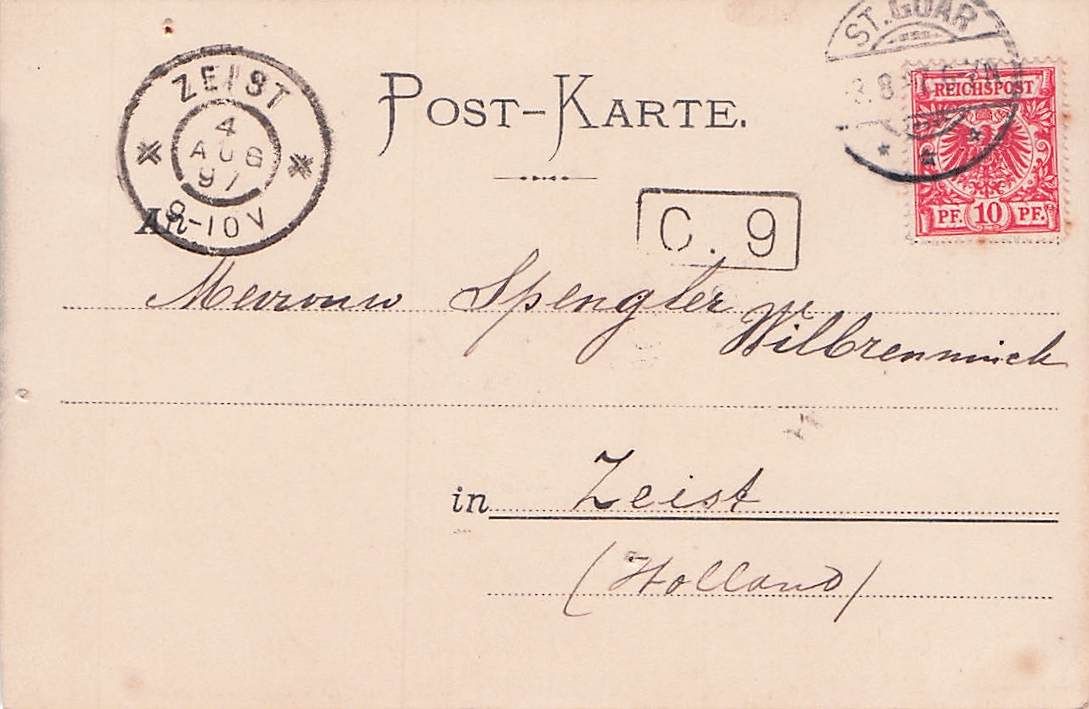 ST. GOAR
ZEIST
4
AUG
97
8-10V
POST-KARTE.
REICHSPOST
PF. 10 PF.
C. 9
An
Mevrouw Spengler
Wilbrenninck
in Zeist
(Holland)